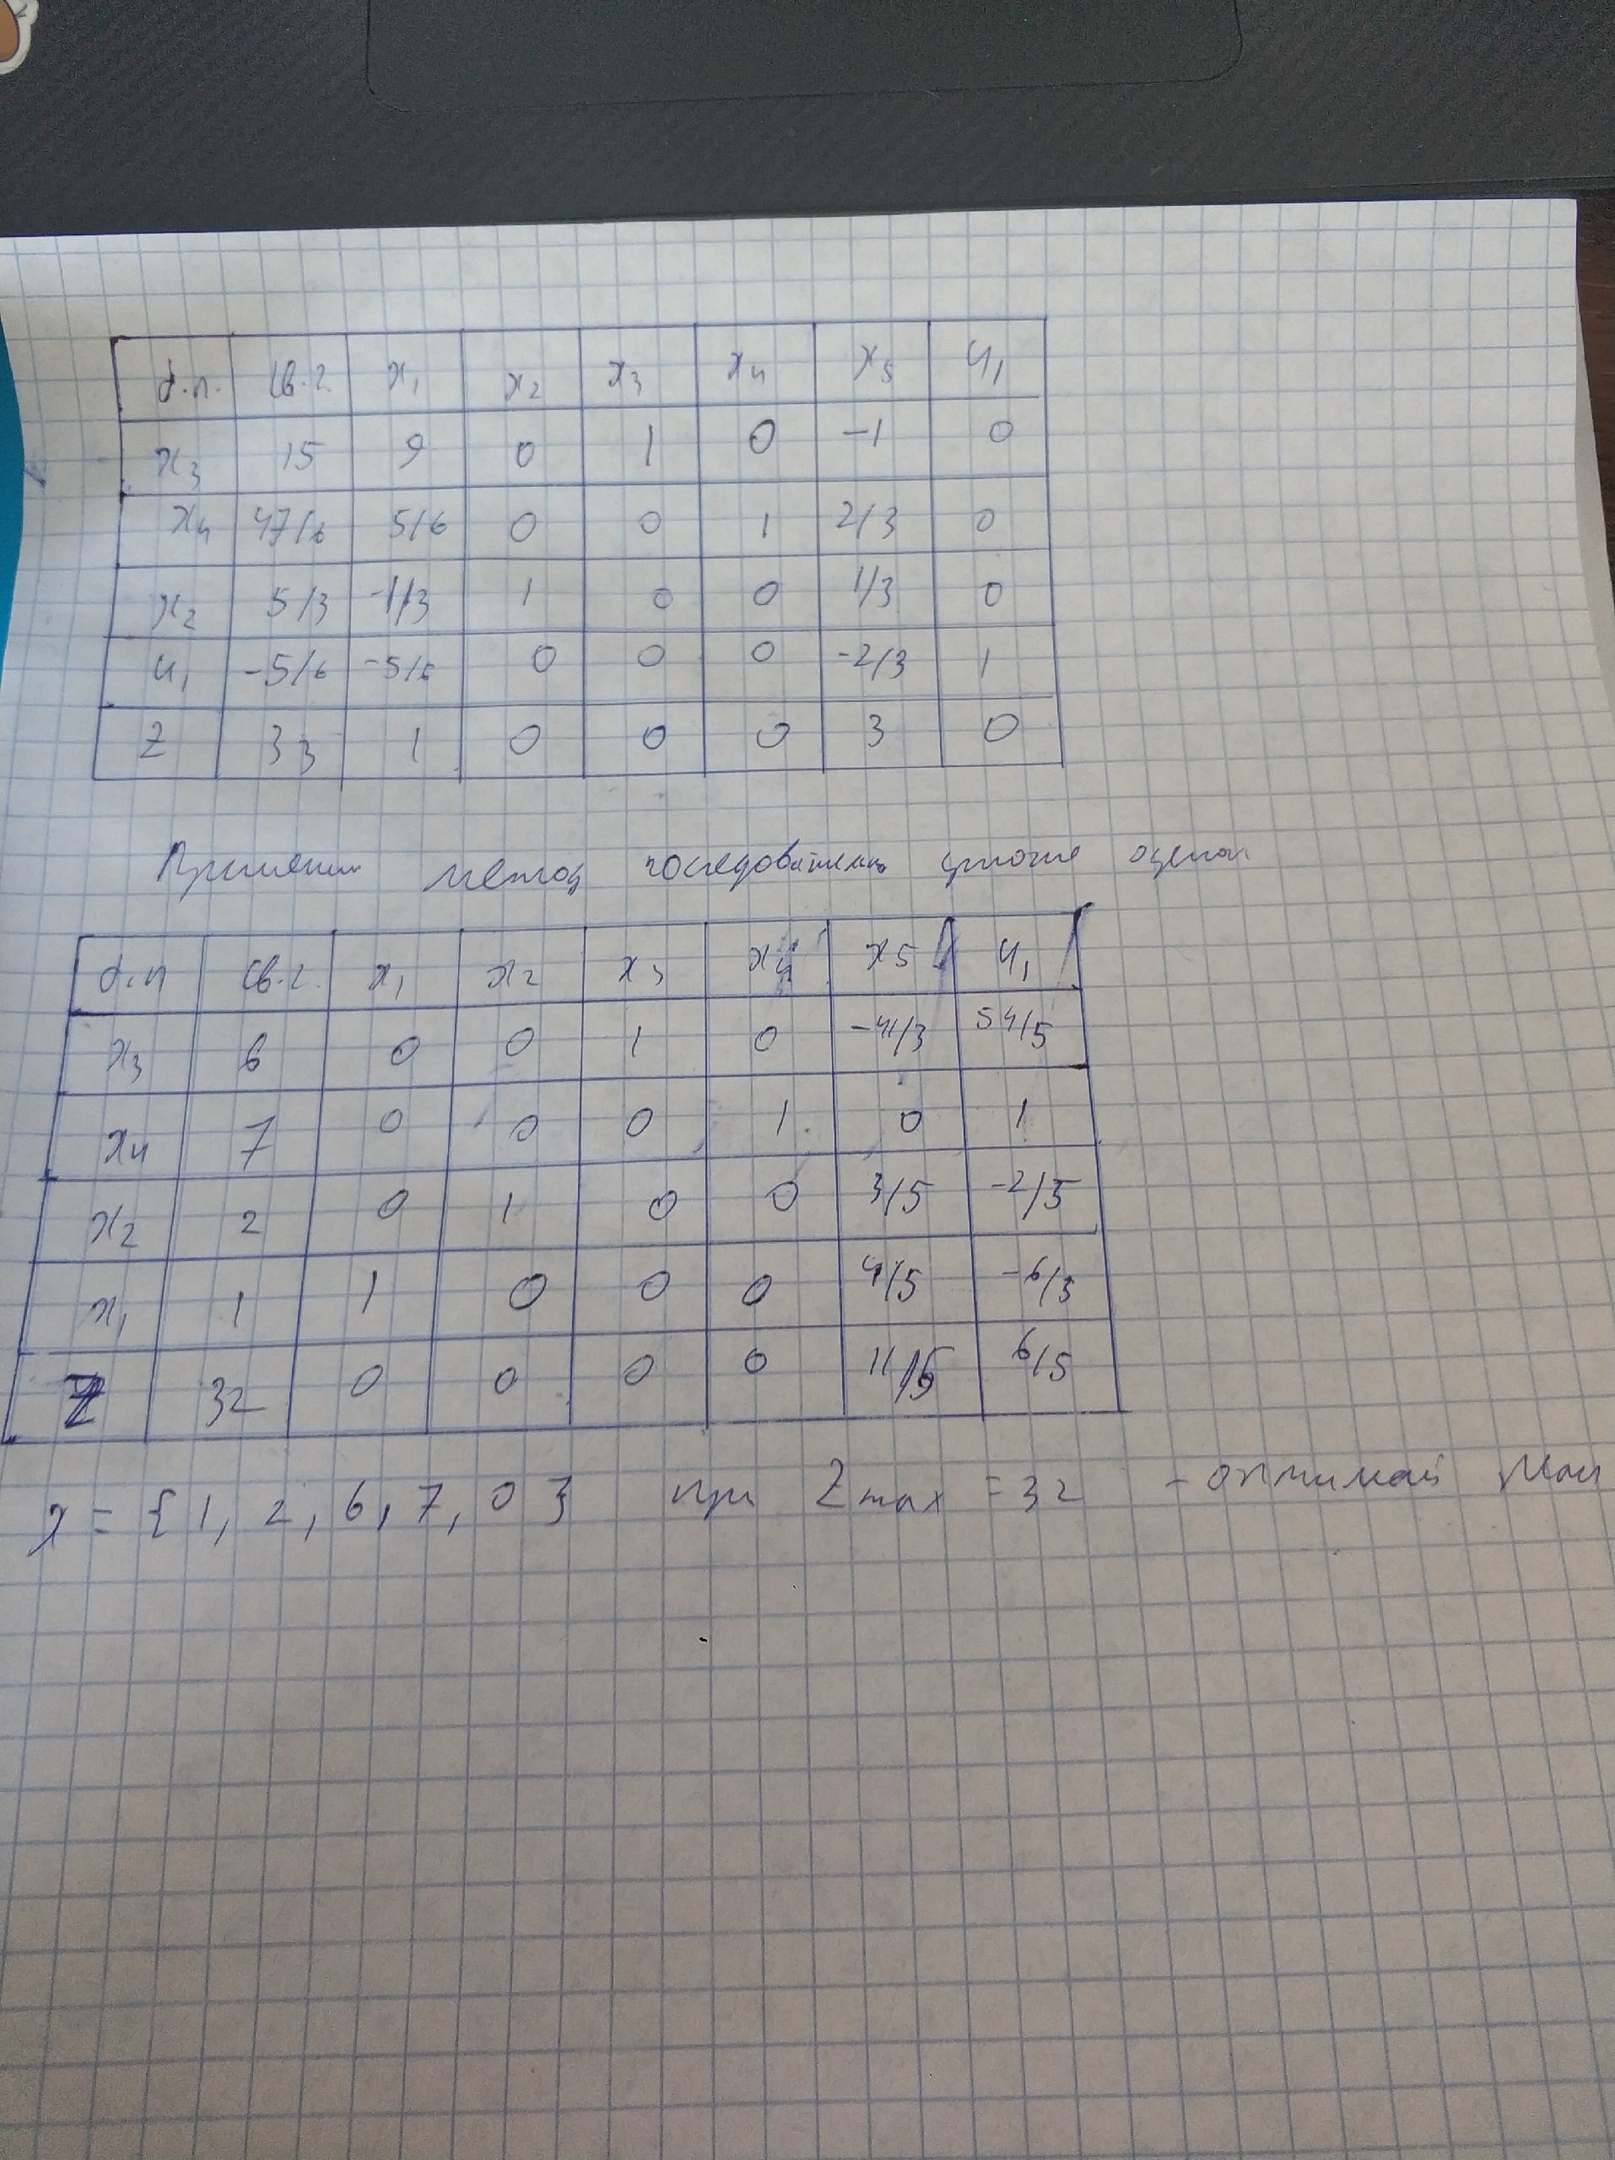 б.п. св.г. x1 x2 x3 x4 x5 u1
x3 15 9 0 1 0 -1 0
x4 47/6 5/6 0 0 1 2/3 0
x2 5/3 -1/3 1 0 0 1/3 0
u1 -5/6 -5/6 0 0 0 -2/3 1
Z 33 1 0 0 0 3 0
Применим метод оценок
б.п св.г. x1 x2 x3 x4 x5 u1
x3 6 0 0 1 0 -41/3 54/5
x4 7 0 0 0 1 0 1
x2 2 0 1 0 0 3/5 -2/5
x1 1 1 0 0 0 4/5 -6/5
Z 32 0 0 0 0 11/5 6/5
x = {1, 2, 6, 7, 0} при Zmax = 32 - план